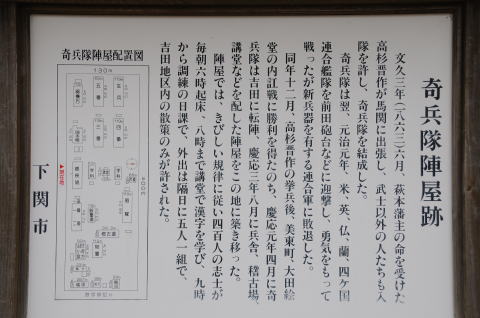 奇兵隊陣屋跡
文久三年(一八六三)六月、萩本藩主の命を受けた
高杉晋作が馬関に出張し、武士以外の人たちも入
隊を許し、奇兵隊を結成した。
奇兵隊は翌、元治元年、米、英、仏、蘭、四ケ国
連合艦隊を前田砲台などに迎撃し、勇気をもって
戦ったが新兵器を有する連合軍に敗退した。
同年十二月、高杉晋作の挙兵後、美東町、大田絵
堂の内訌戦に勝利を得たのち、慶応元年四月に奇
兵隊は吉田に転陣、慶応三年八月に兵舎、稽古場、
講堂などを配した陣屋をこの地に築き移った。
陣屋では、きびしい規律に従い四百人の志士が
毎朝六時起床、八時まで講堂で漢字を学び、九時
から調練の日課で、外出は隔日に五人一組で、
吉田地区内の散策のみが許された。
下関市
奇兵隊陣屋配置図
130m